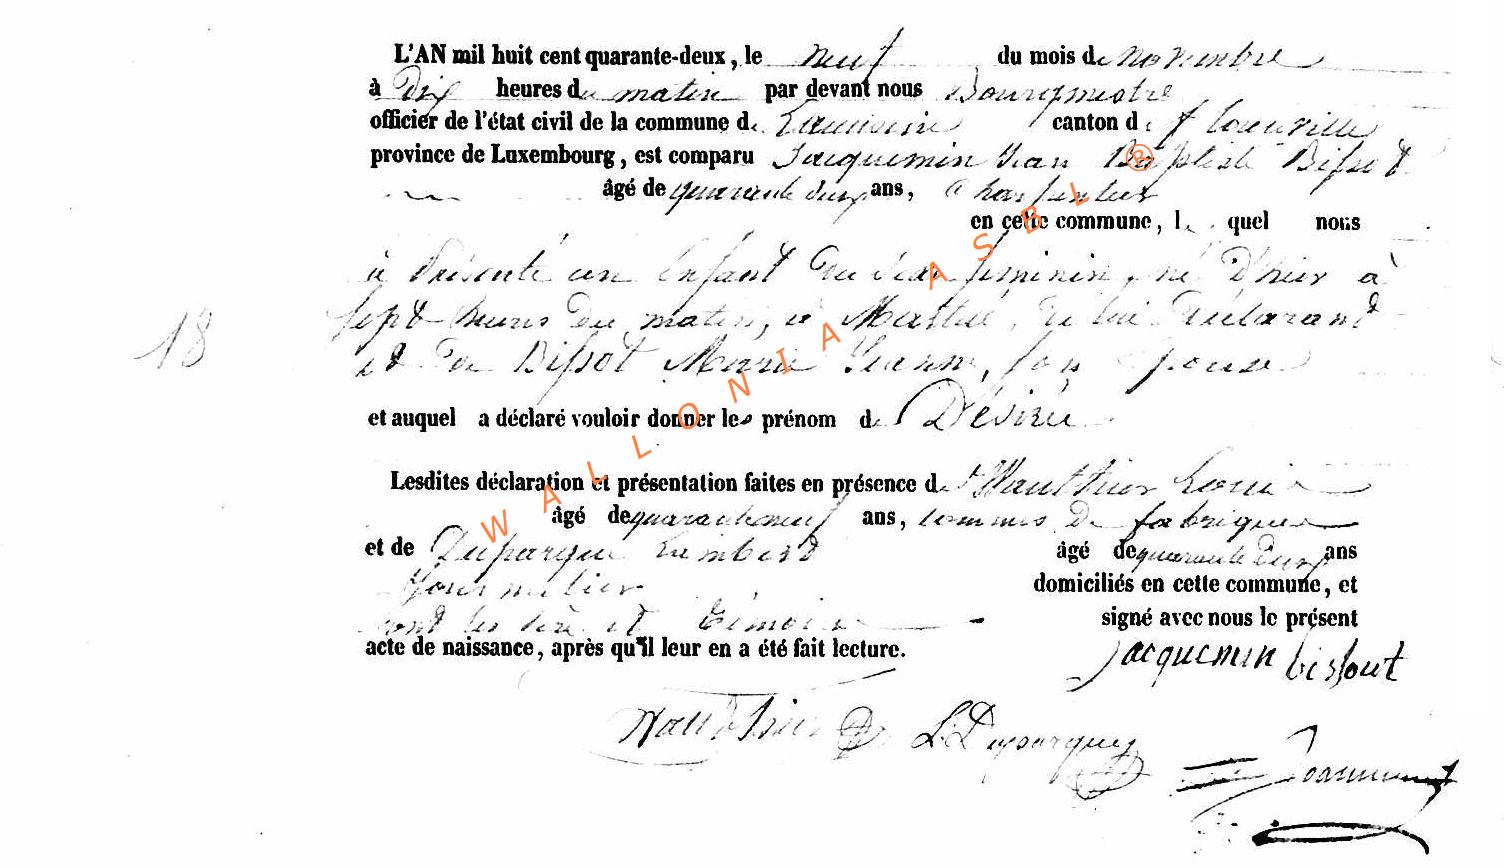 L'AN mil huit cent quarante-deux, le neuf du mois de novembre
à Dix heures du matin par devant nous Bourgmestre
officier de l'état civil de la commune de canton de flomville
province de Luxembourg, est comparu Jacquemin Jean Baptiste Bissot
âgé de quarante deux ans, Charpentier
en cette commune, le quel nous
à présenté un enfant du sexe feminin, né D'hier à
sept heures du matin, à de lui Déclarand
et de Bissot Marie Jeanne, son Epouse
18
et auquel a déclaré vouloir donner les prénom de Désirée
Lesdites déclaration et présentation faites en présence de Wauthier Louis
âgé de quarante neuf ans, commis de fabrique
et de Duparque Lambert âgé de quarante deux ans
Journalier domiciliés en cette commune, et
ont les père et témoins signé avec nous le présent
acte de naissance, après qu'il leur en a été fait lecture.
jacquemin bissout
Wauthier L. Duparque
WALLONIA ASBL ®